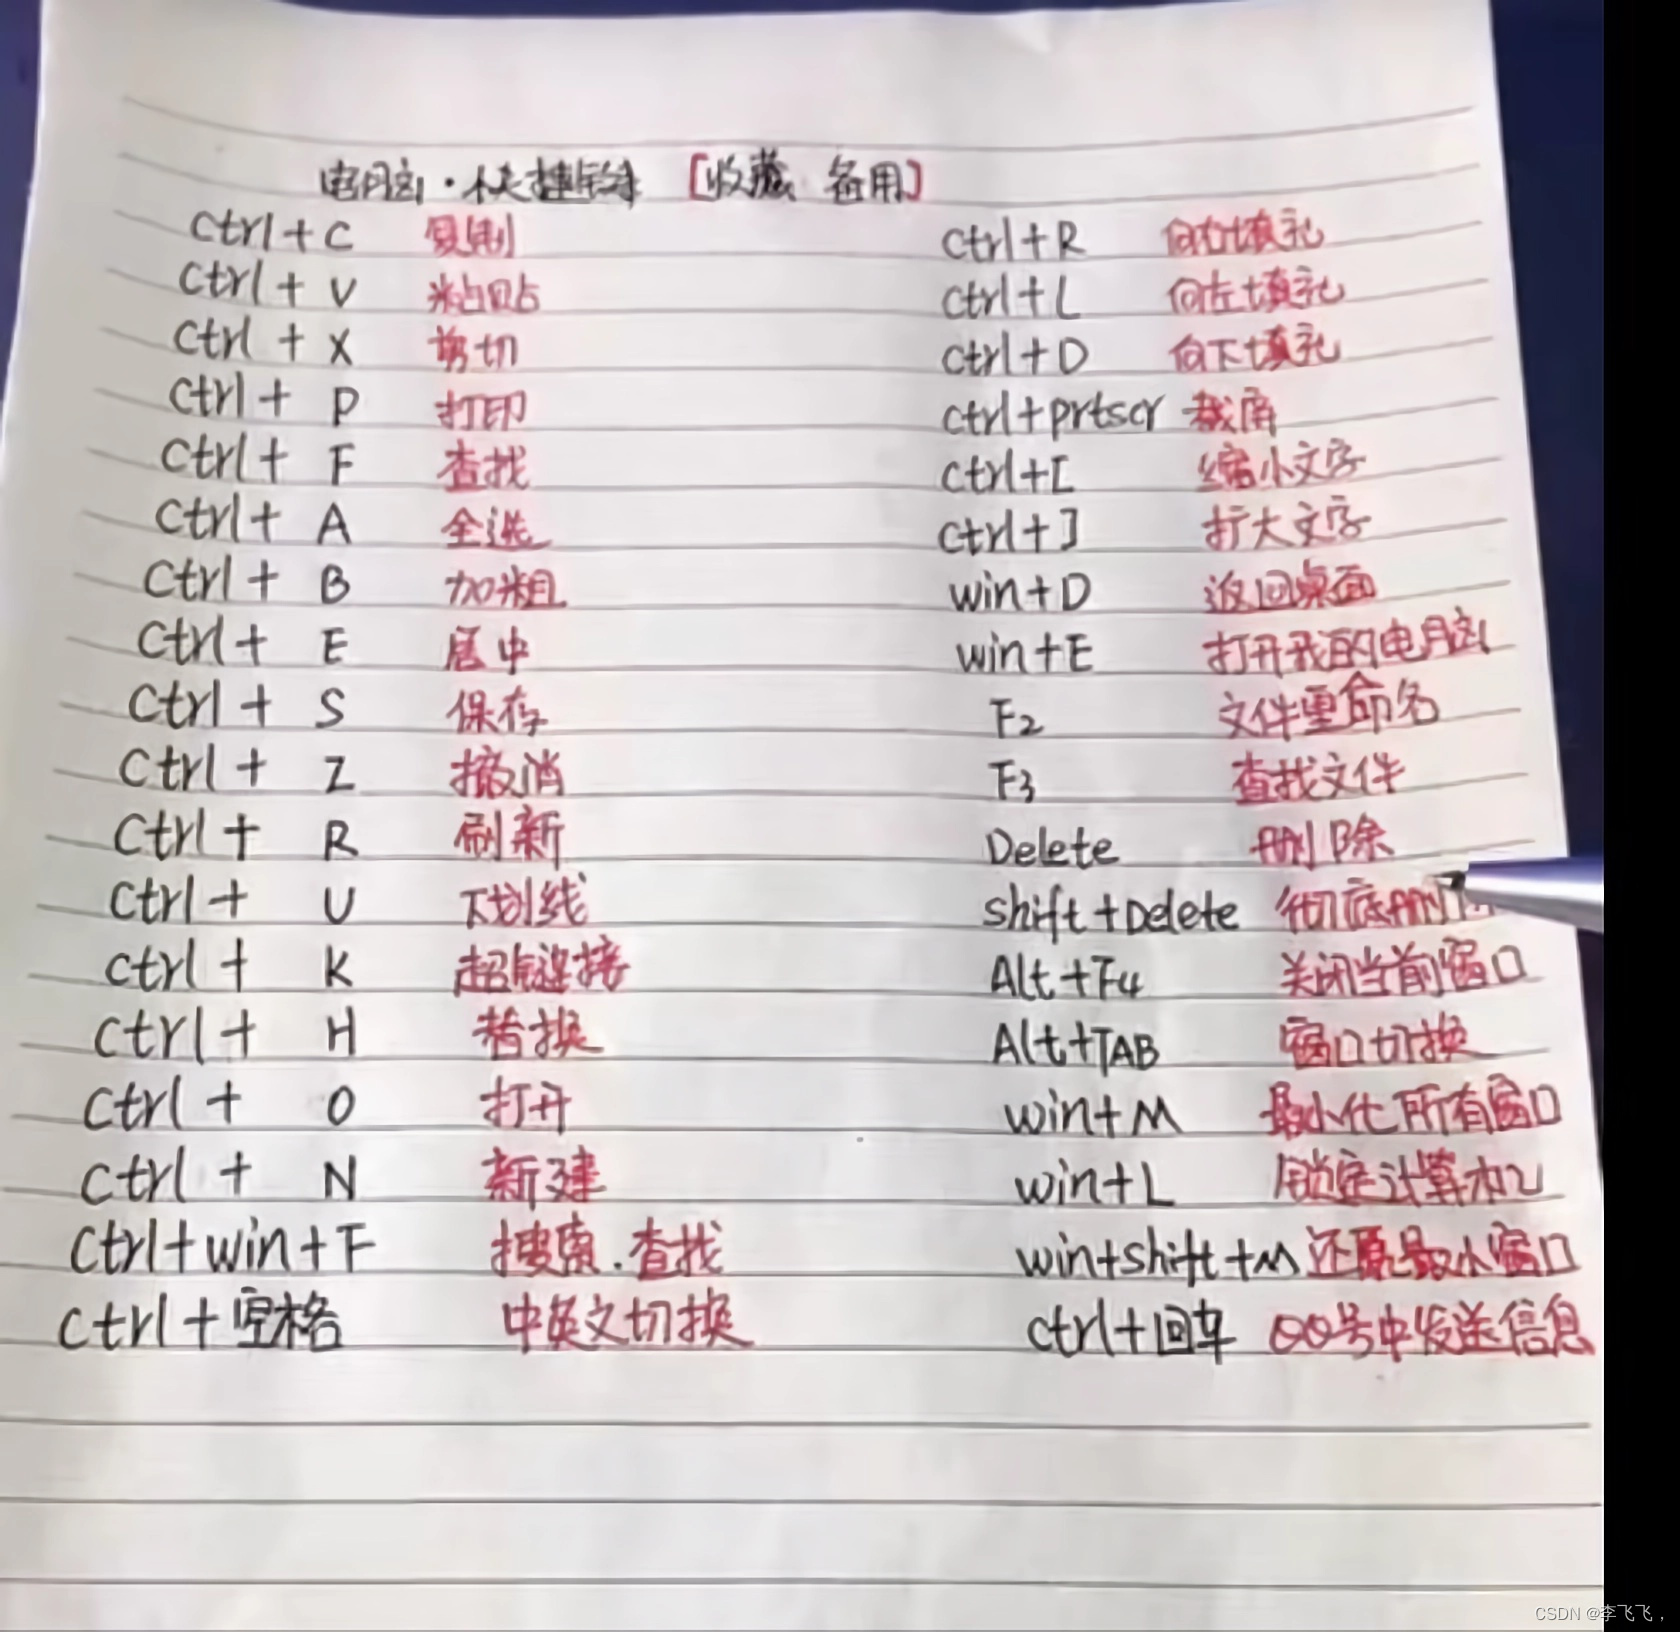 电脑·快捷键 [收藏 备用]
Ctrl+C 复制
Ctrl+V 粘贴
Ctrl+X 剪切
Ctrl+P 打印
Ctrl+F 查找
Ctrl+A 全选
Ctrl+B 加粗
Ctrl+E 居中
Ctrl+S 保存
Ctrl+Z 撤消
Ctrl+R 刷新
Ctrl+U 下划线
Ctrl+K 超链接
Ctrl+H 替换
Ctrl+O 打开
Ctrl+N 新建
Ctrl+win+F 搜索.查找
Ctrl+空格 中英文切换
Ctrl+R 向右填充
Ctrl+L 向左填充
Ctrl+D 向下填充
Ctrl+prtscr 截屏
Ctrl+[ 缩小文字
Ctrl+] 扩大文字
win+D 返回桌面
win+E 打开我的电脑
F2 文件重命名
F3 查找文件
Delete 删除
shift+Delete 彻底删
Alt+F4 关闭当前窗口
Alt+TAB 窗口切换
win+M 最小化所有窗口
win+L 锁定计算机
win+shift+M 还原最小窗口
Ctrl+回车 QQ号中发送信息
CSDN @李飞飞，